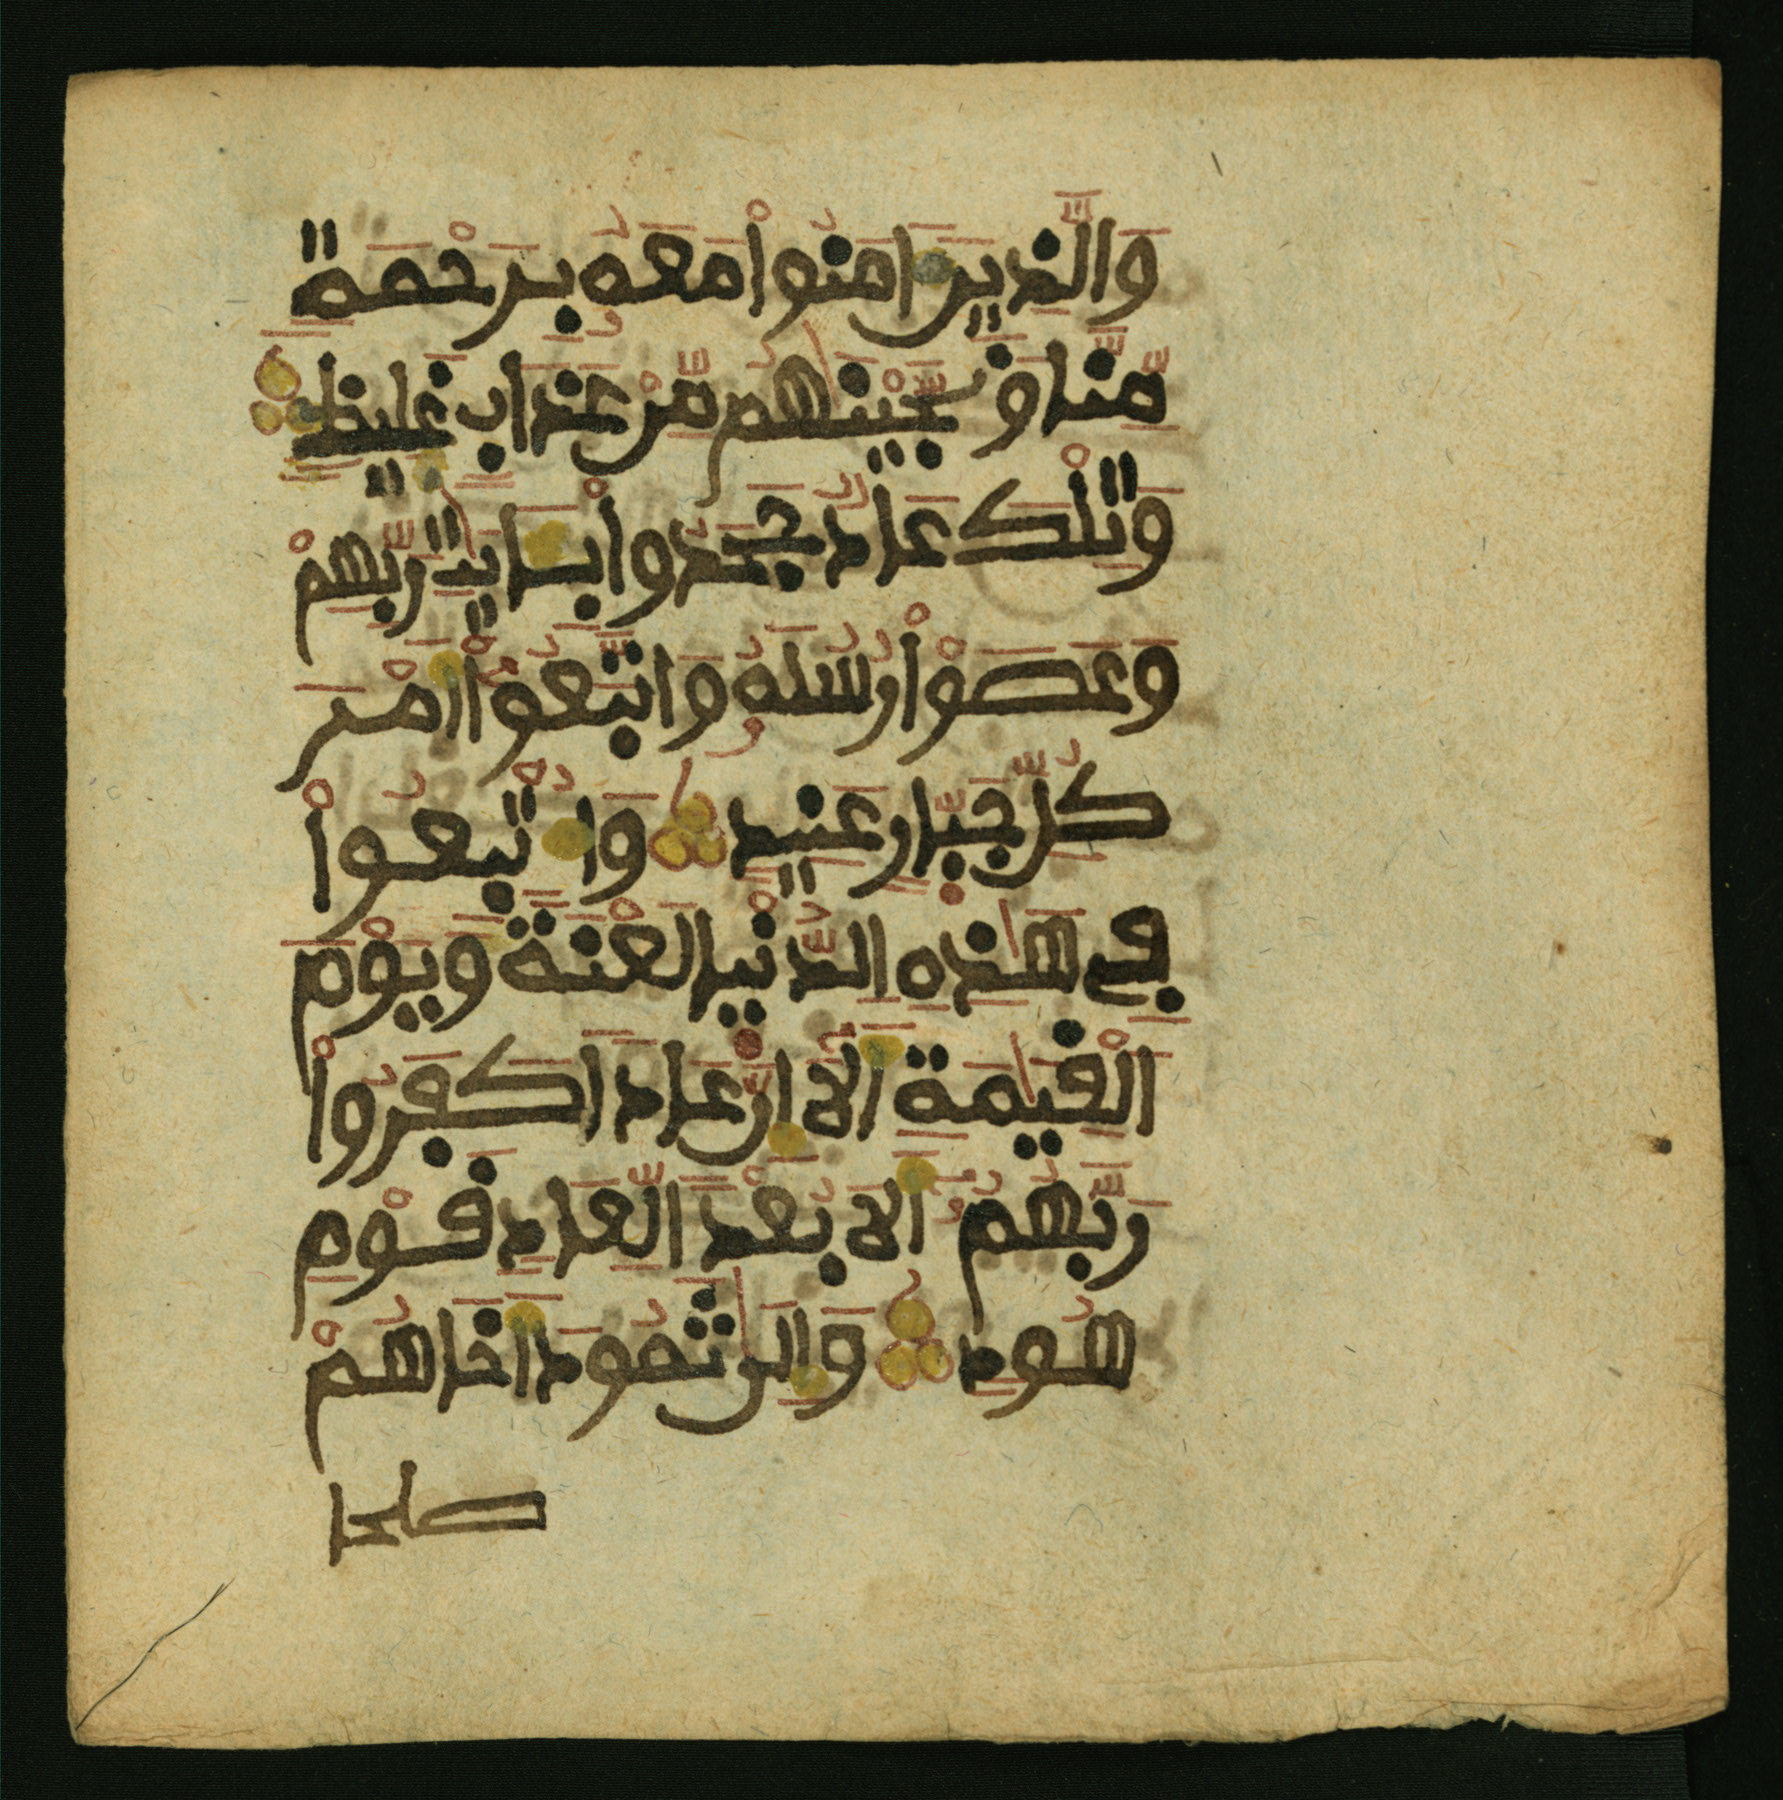 وَالَّذِينَ ءَامَنُواْ مَعَهُ بِرَحْمَةٍ
مِّنَّا وَنَجَّيْنَٰهُم مِّنْ عَذَابٍ غَلِيظٍ
وَتِلْكَ عَادٌ جَحَدُواْ بِـَٔايَٰتِ رَبِّهِمْ
وَعَصَوْاْ رُسُلَهُ وَاتَّبَعُواْ أَمْرَ
كُلِّ جَبَّارٍ عَنِيدٍ وَأُتْبِعُواْ
فِے هَٰذِهِ الدُّنْيَا لَعْنَةً وَيَوْمَ
الْقِيَٰمَةِ أَلَا إِنَّ عَاداً كَفَرُواْ
رَبَّهُمْ أَلَا بُعْداً لِّعَادٍ قَوْمِ
هُودٍ وَإِلَىٰ ثَمُودَ أَخَاهُمْ
صلحا